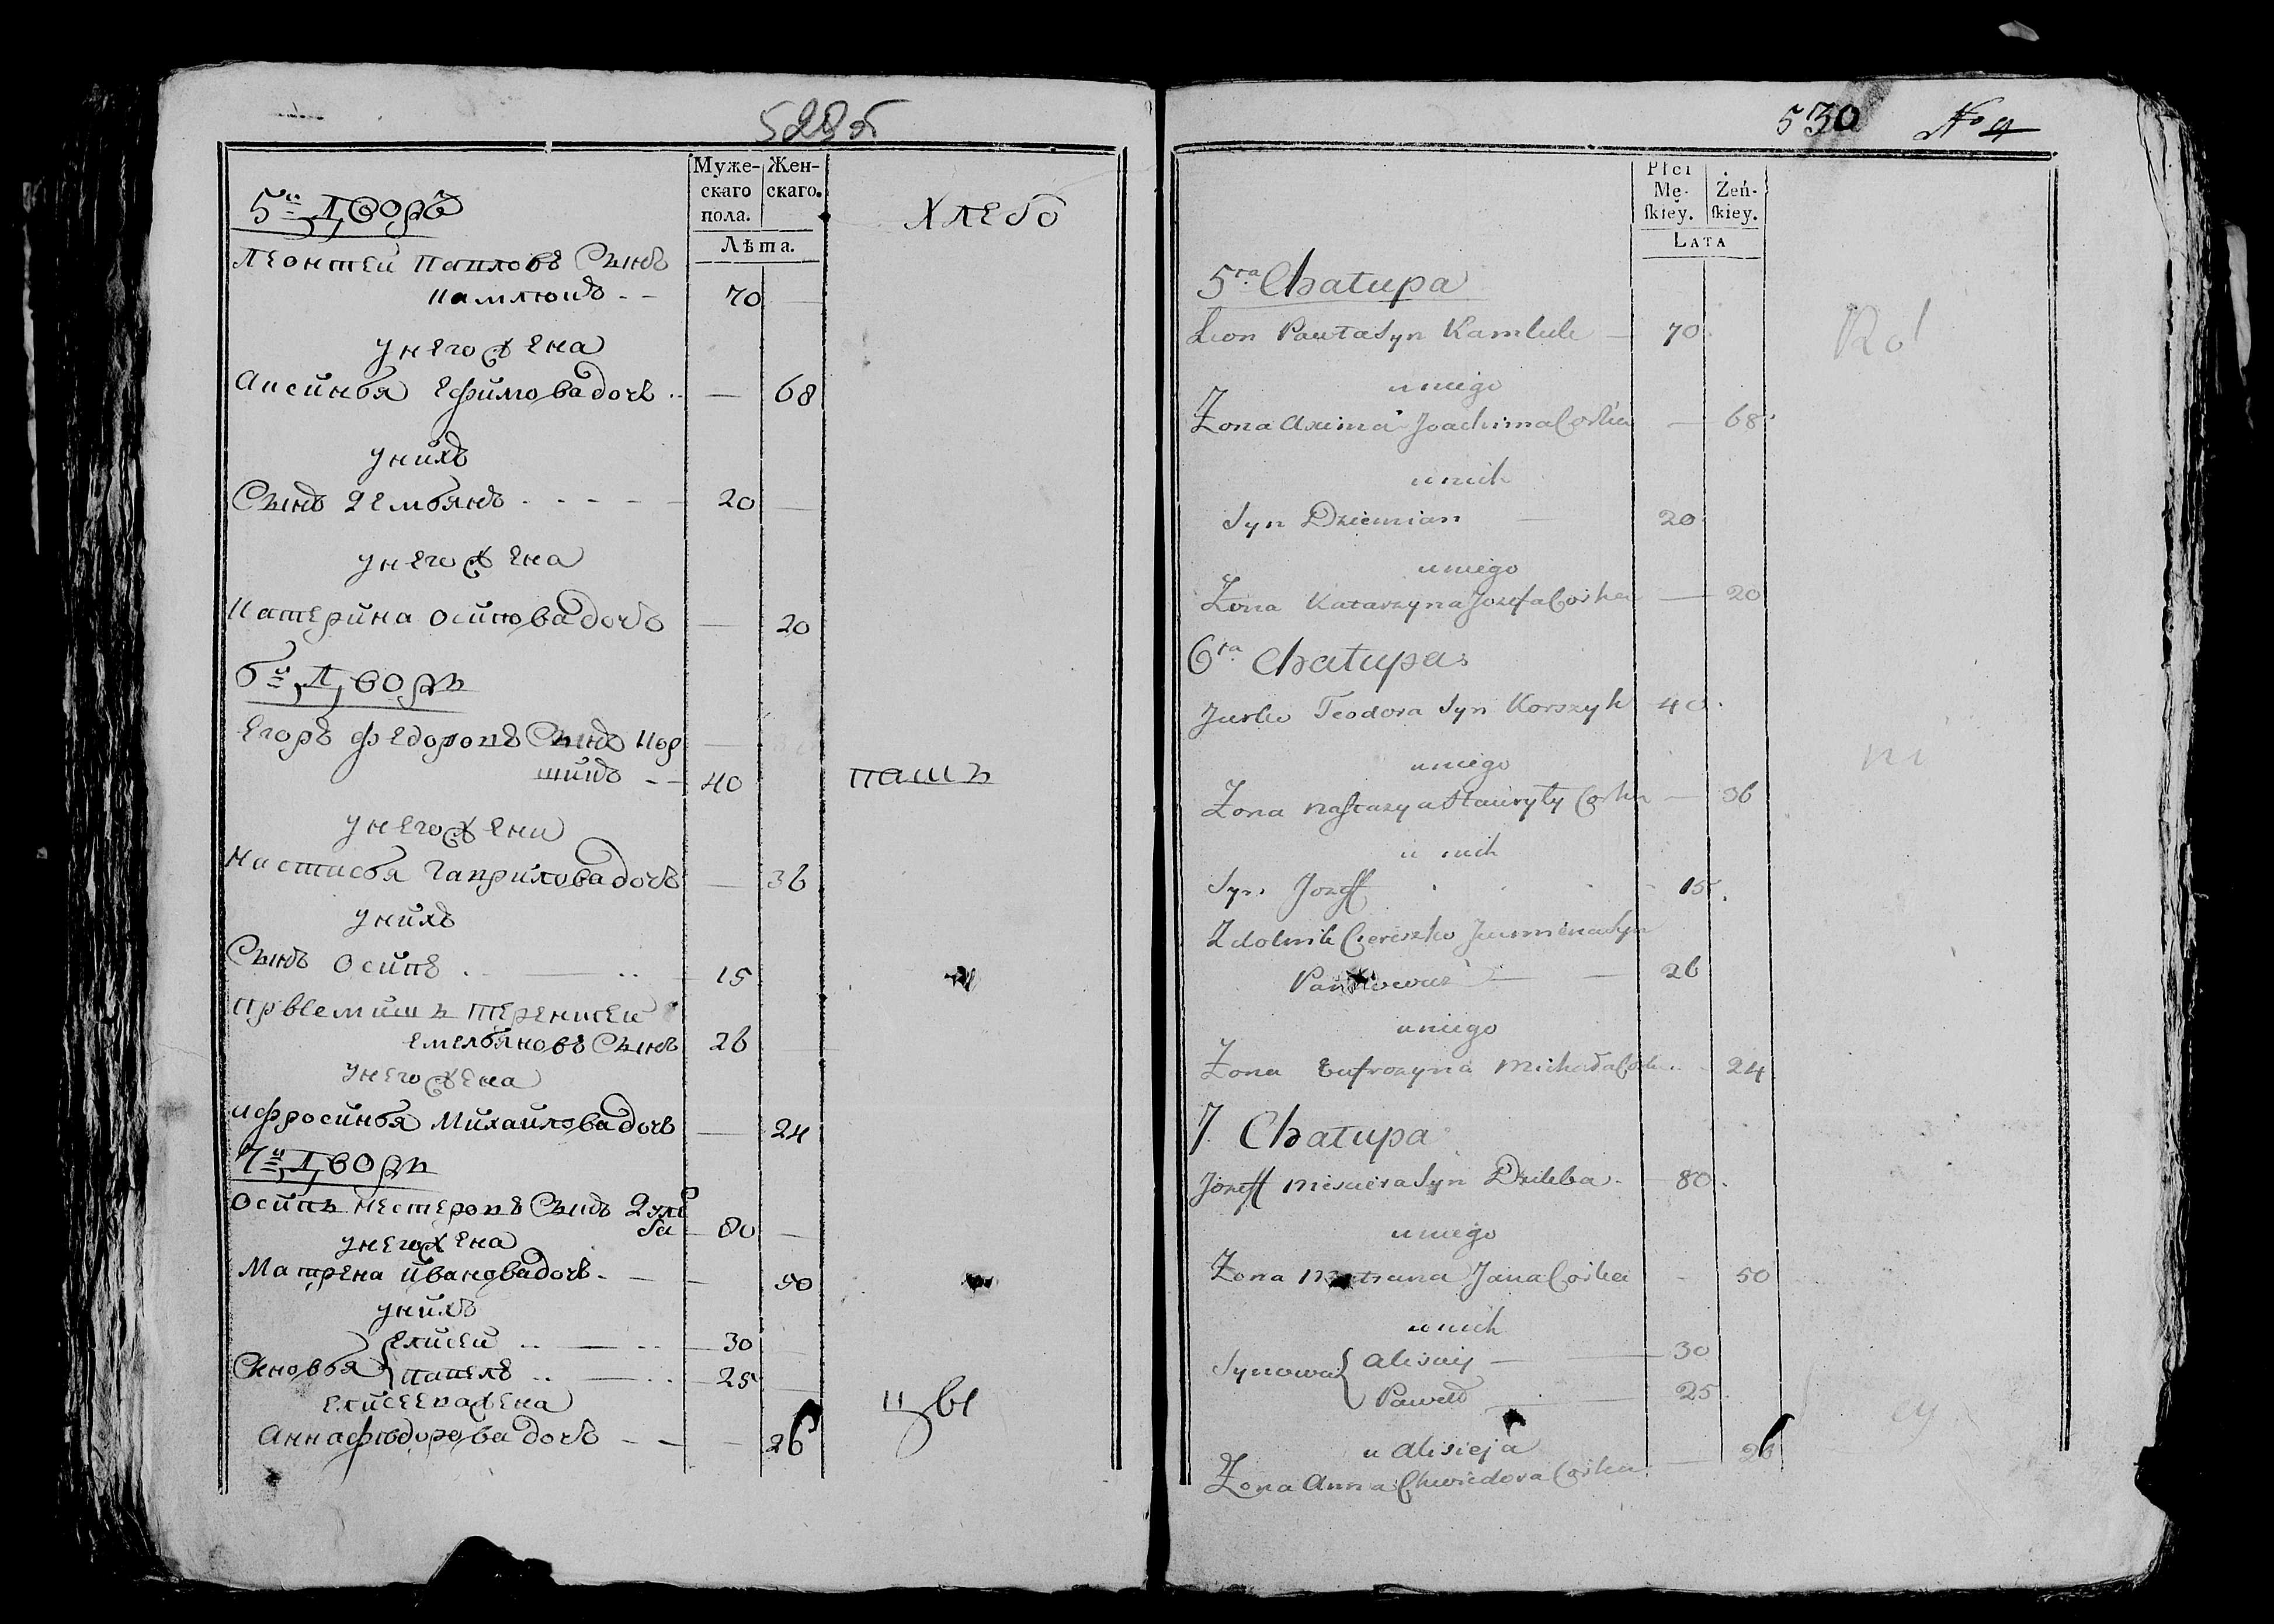 529 об
Муже-
скаго
пола.
Жен-
скаго.
Лѣта.
5й Дворъ
Хлебо
Леонтей Павловъ Сынъ
Камлюкъ - - 70 —
у него жена
Аксинья Ефимова дочь .. — 68
у нихъ
Сынъ Демьянъ - - - - - 20 —
у него жена
Катерина Осипова дочь — 20
6й Дворъ
Егоръ Федоровъ Сынъ Кор
шикъ - - 40
пашъ
у него жена
Настасья Гаврилова дочь — 36
у нихъ
Сынъ Осипъ . — .. 15
Прiемышъ Терентей
Емельяновъ Сынъ 26 —
у него жена
Ифросинья Михайлова дочь — 24
7й Дворъ
Осипъ Нестеровъ Сынъ Дзле
ба 80 —
у него жена
Матрена Иванова дочь - — — 50
у нихъ
Сыновья { Елисей .. — .. 30 —
Павелъ .. — .. 25 —
Елисеева жена
Анна Федорова дочь - - — 26
цве
530 No 4
Płci
Mę-
ſkiey.
Żeń-
ſkiey.
LATA
5ta Chatupa
Leon Pawła Syn Kamluk — 70
u niego
Żona Axinia Joachima Corka — 68
u nich
Syn Dziemian — 20
u niego
Żona Katarzyna Jozefa Corka — 20
6ta Chatupa
Jurko Teodora Syn Korszyk 40
u niego
Żona Naſtazya Hawryły Corka — 36
u nich
Syn Jozeff 15
Zdolnik Cereszko Syn
26
u niego
Żona Eufrozyna Michała Cork 24
7. Chatupa
Jozeff Syn Dzileba 80
u niego
Żona Matruna Jana Corka 50
u nich
Synowie { Alisiej — 30
Paweł — 25
u Alisieja
Żona Anna Chwiedora Corka — 26